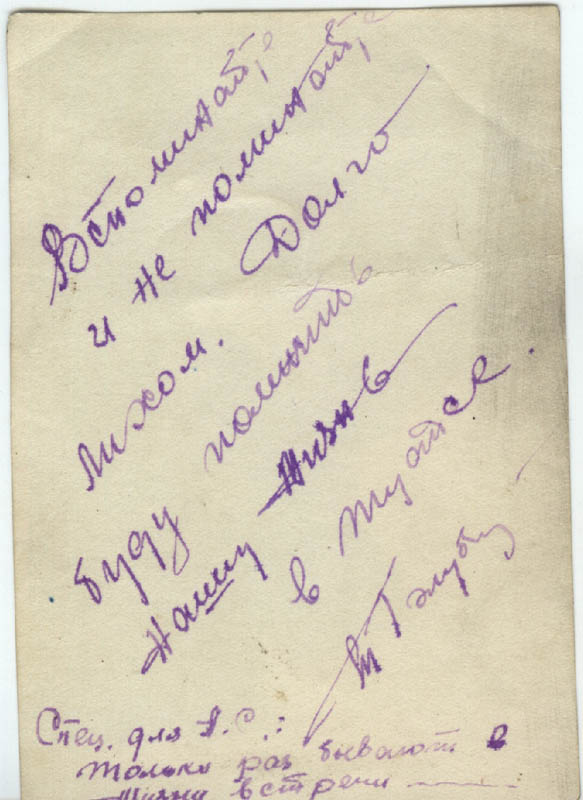 Вспоминайте
и не поминайте
лихом. Долго
буду помнить
нашу жизнь
в Туапсе.
Спец. для А.С.:
только раз бывают в
жизни встречи